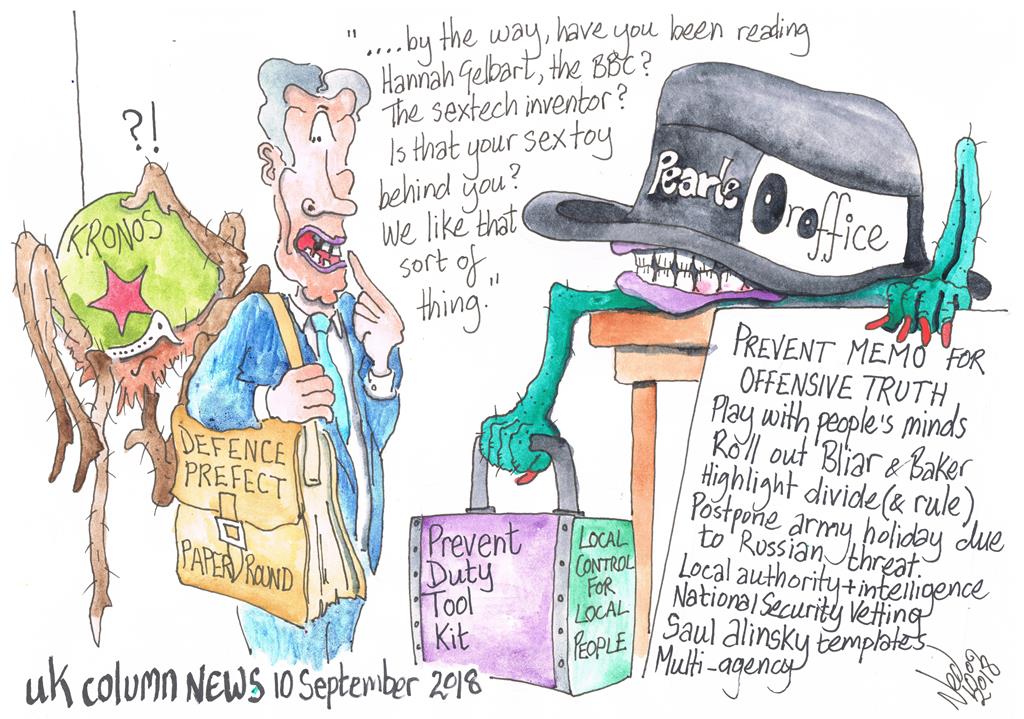 "....by the way, have you been reading
Hannah Gelbart, the BBC?
The sextech inventor?
Is that your sex toy
behind you?
We like that
sort of
thing."
?!
KRONOS
DEFENCE
PREFECT
PAPER ROUND
Pearl
Or office
PREVENT MEMO FOR
OFFENSIVE TRUTH
Play with people's minds
Roll out Bliar & Baker
Highlight divide (& rule)
Postpone army holiday due
to Russian threat
Local authority + intelligence
National Security Vetting
Saul Alinsky templates
Multi-agency
Prevent
Duty
Tool
Kit
LOCAL
CONTROL
FOR
LOCAL
PEOPLE
UK COLUMN NEWS 10 September 2018
2018